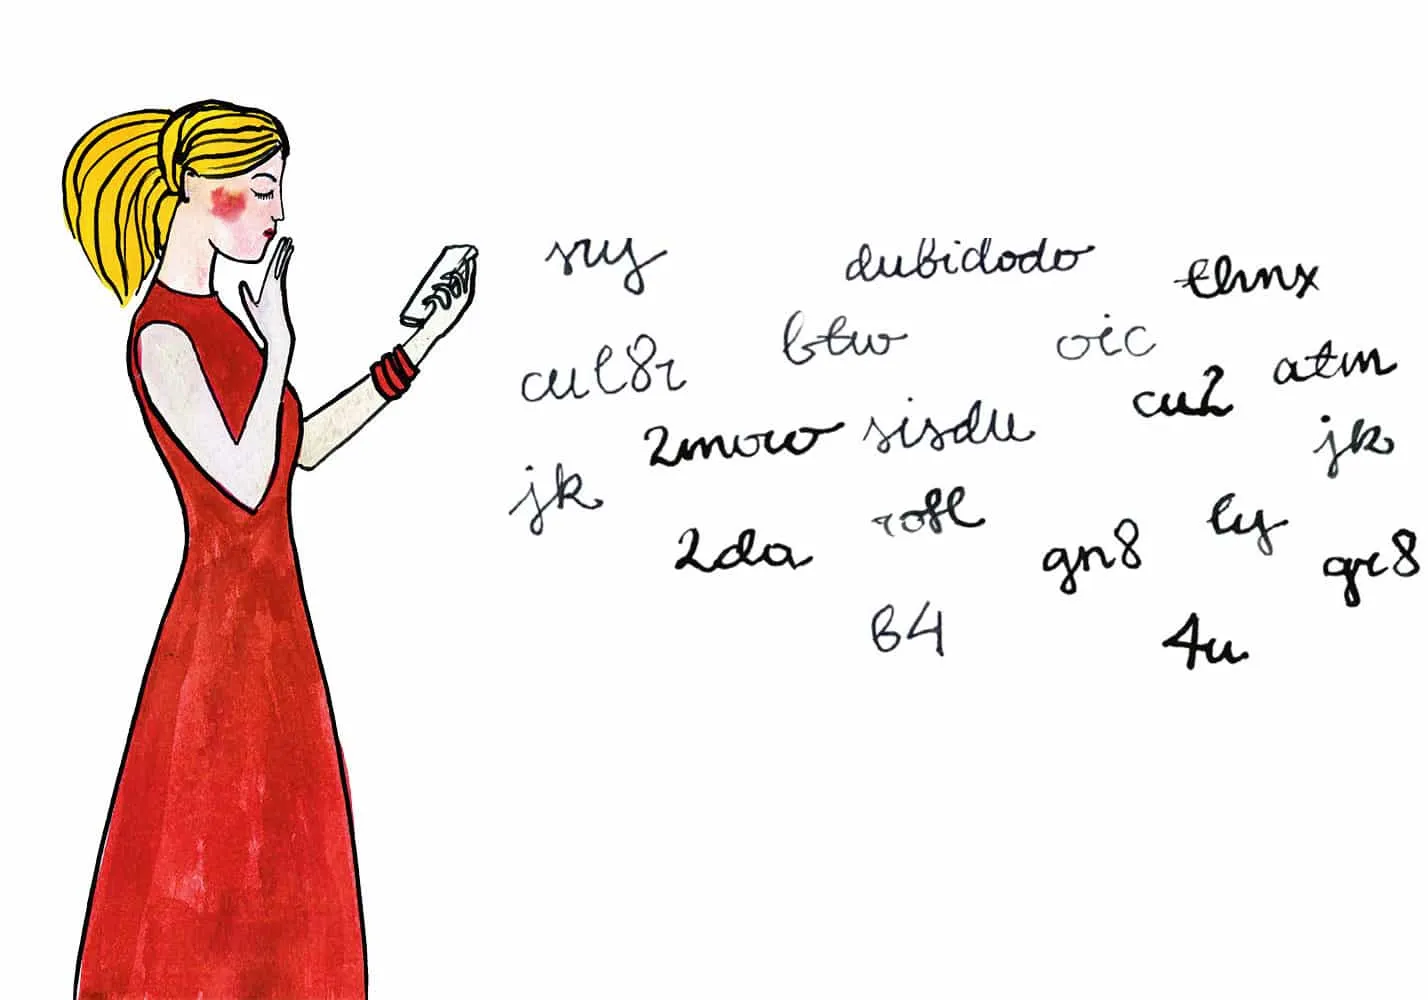 sry dubidodo thnx
btw oic
cul8r cu2 atm
2moro sisdu jk
jk rofl ly
2da gn8 gr8
B4 4u